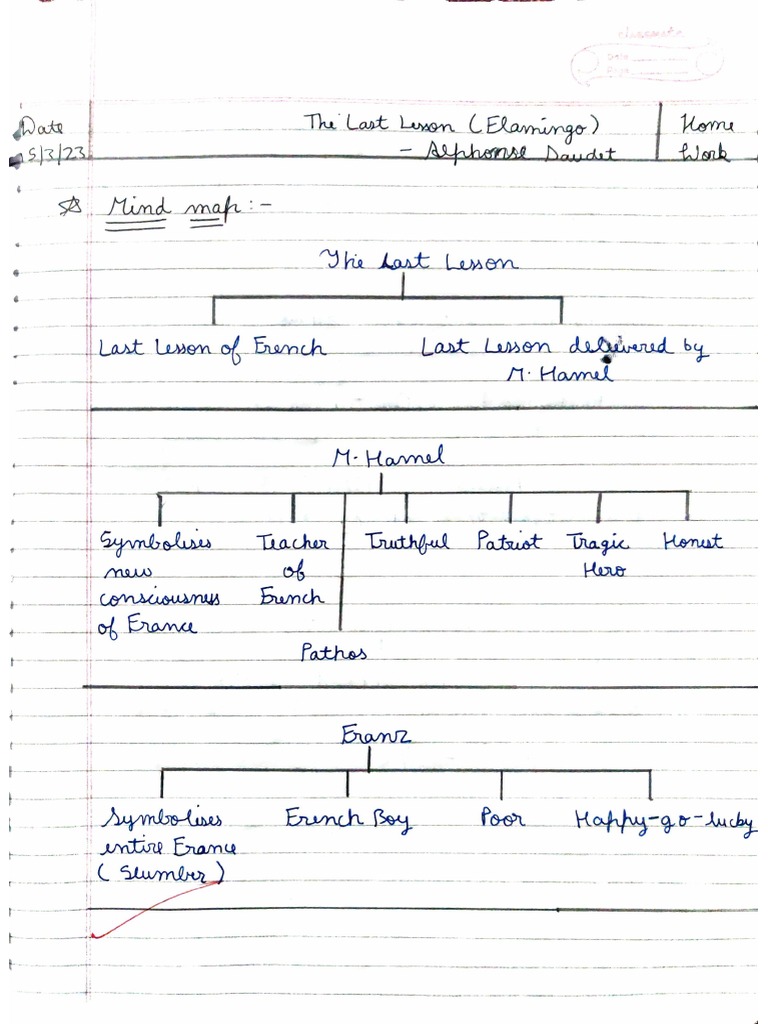 classmate
Date
Page
Date
15/3/23
The Last Lesson (Flamingo)
- Alphonse Daudet
Home
Work
☆ Mind map :-
The Last Lesson
Last Lesson of French
Last Lesson delivered by
M. Hamel
M. Hamel
Symbolises
new
consciousness
of France
Teacher
of
French
Pathos
Truthful
Patriot
Tragic
Hero
Honest
Franz
Symbolises
entire France
(Slumber)
French Boy
Poor
Happy-go-lucky